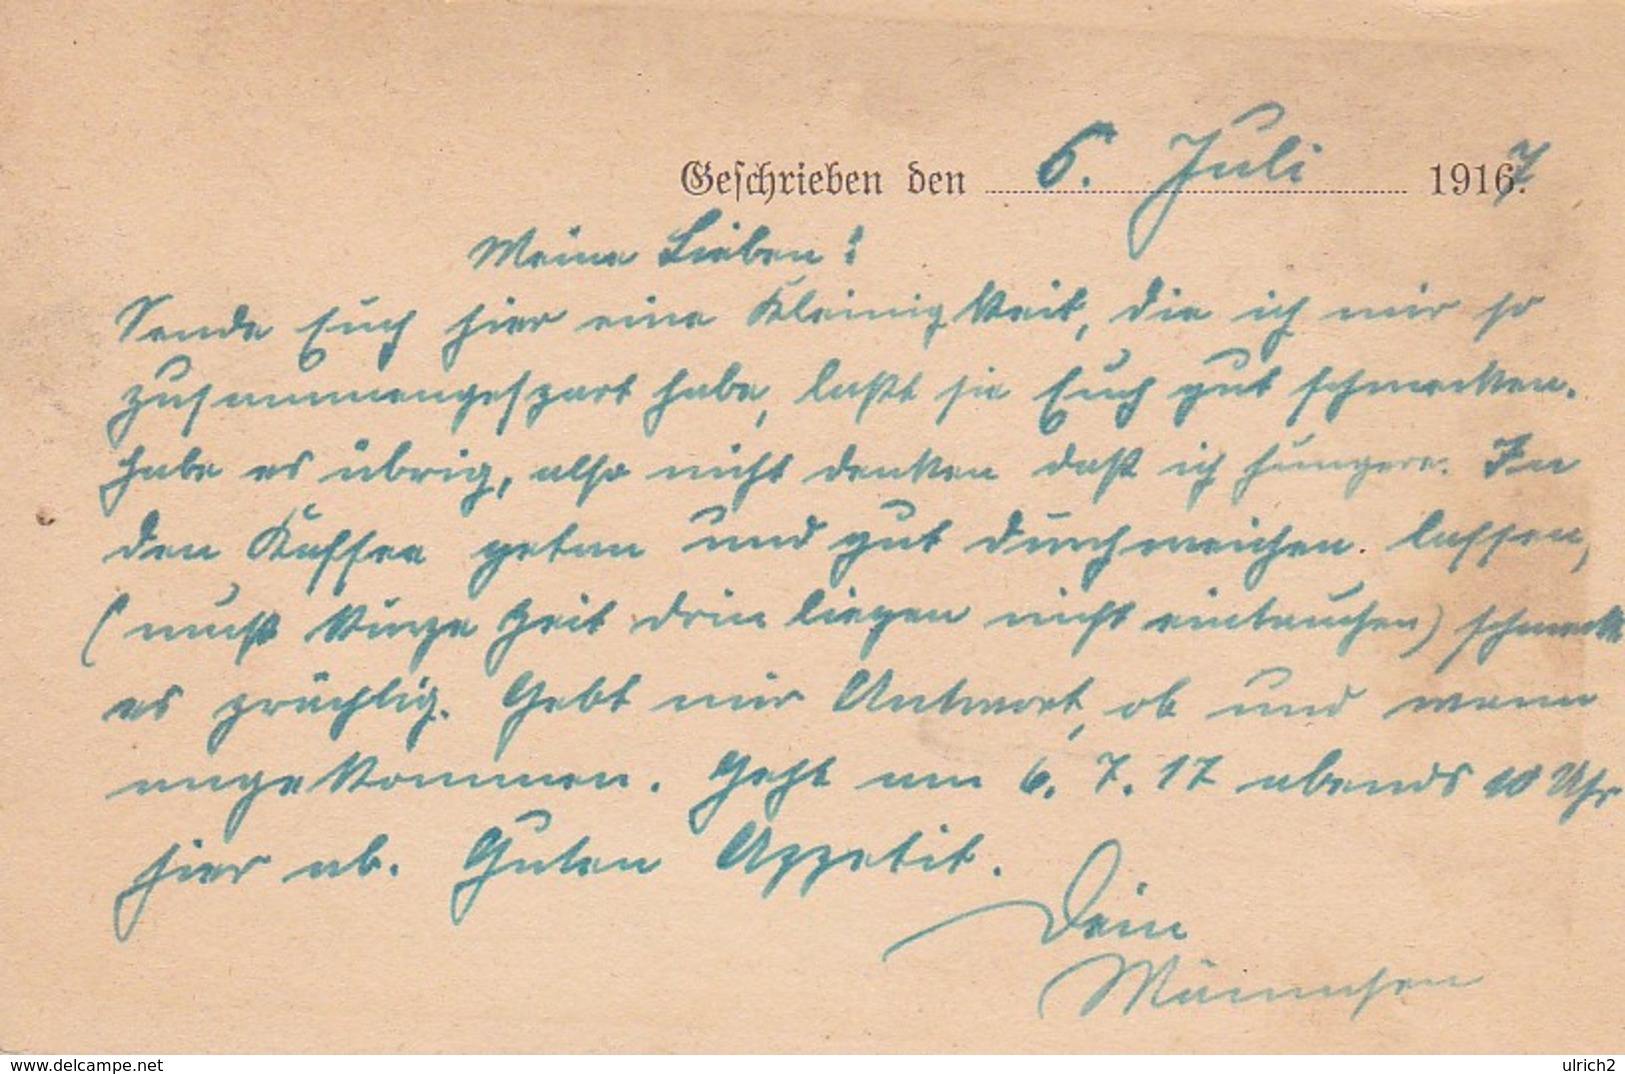 Geschrieben den 6. Juli 1917.
Meine Lieben!
Sende Euch hier eine Kleinigkeit, die ich mir so
zusammengespart habe, laßt sie Euch gut schmecken.
habe es übrig, also nicht denken daß ich hungere. In
den Kaffee getan und gut durchweichen lassen,
(muß kurze Zeit drin liegen nicht eintauchen) schmeckt
es prächtig. Gebt mir Antwort, ob und wann
angekommen. Geht am 6. 7. 17 abends 10 Uhr
hier ab. Guten Appetit.
Dein
Männchen
delcampe.net
ulrich2